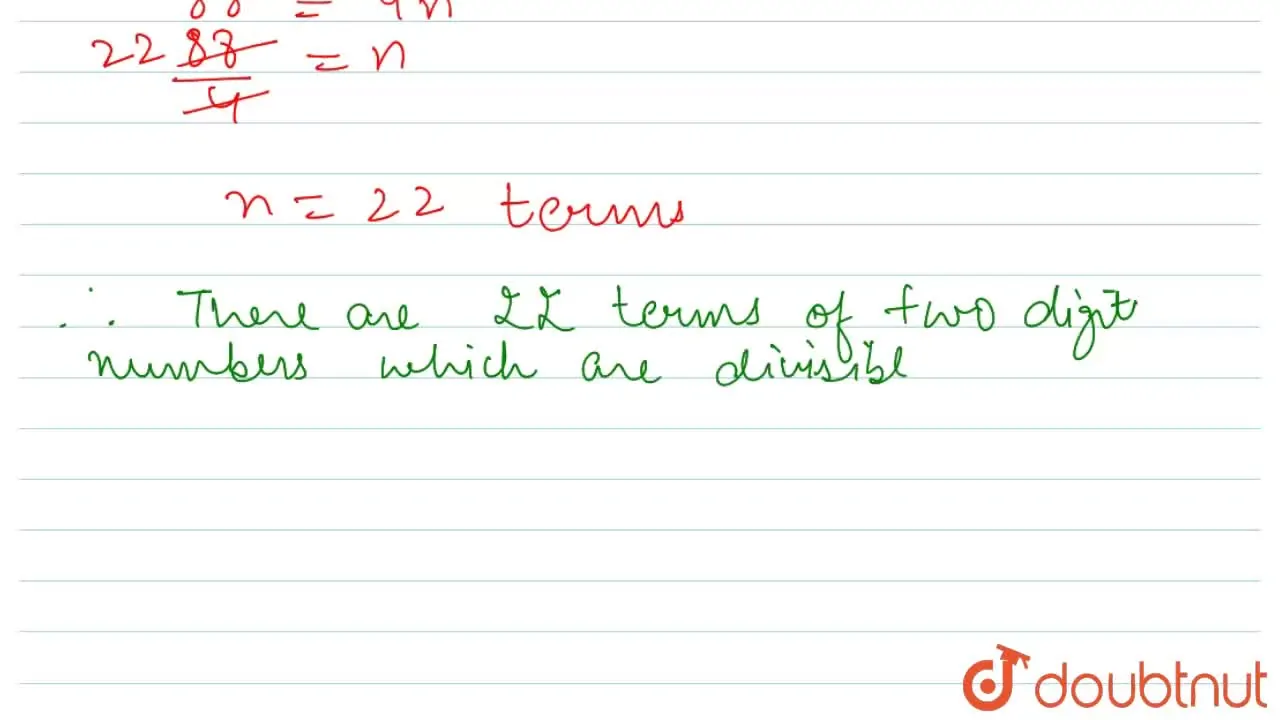 88 = 4n
22 88 = n
4
n = 22 terms
∴ There are 22 terms of two digit
numbers which are divisibl
doubtnut